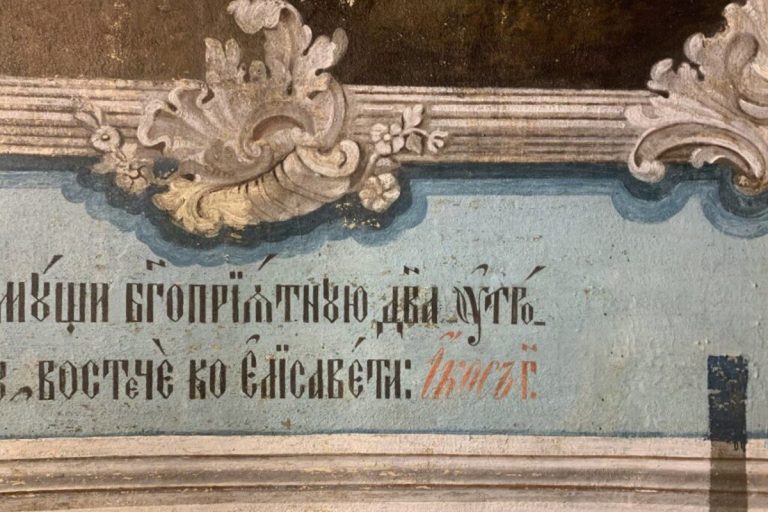 мꙋ́щи бг҃опрїѧ́тную дв҃а ᲂу҆тро́-
востечѐ ко є҆лїсаве́ти: І҆́косъ г҃.